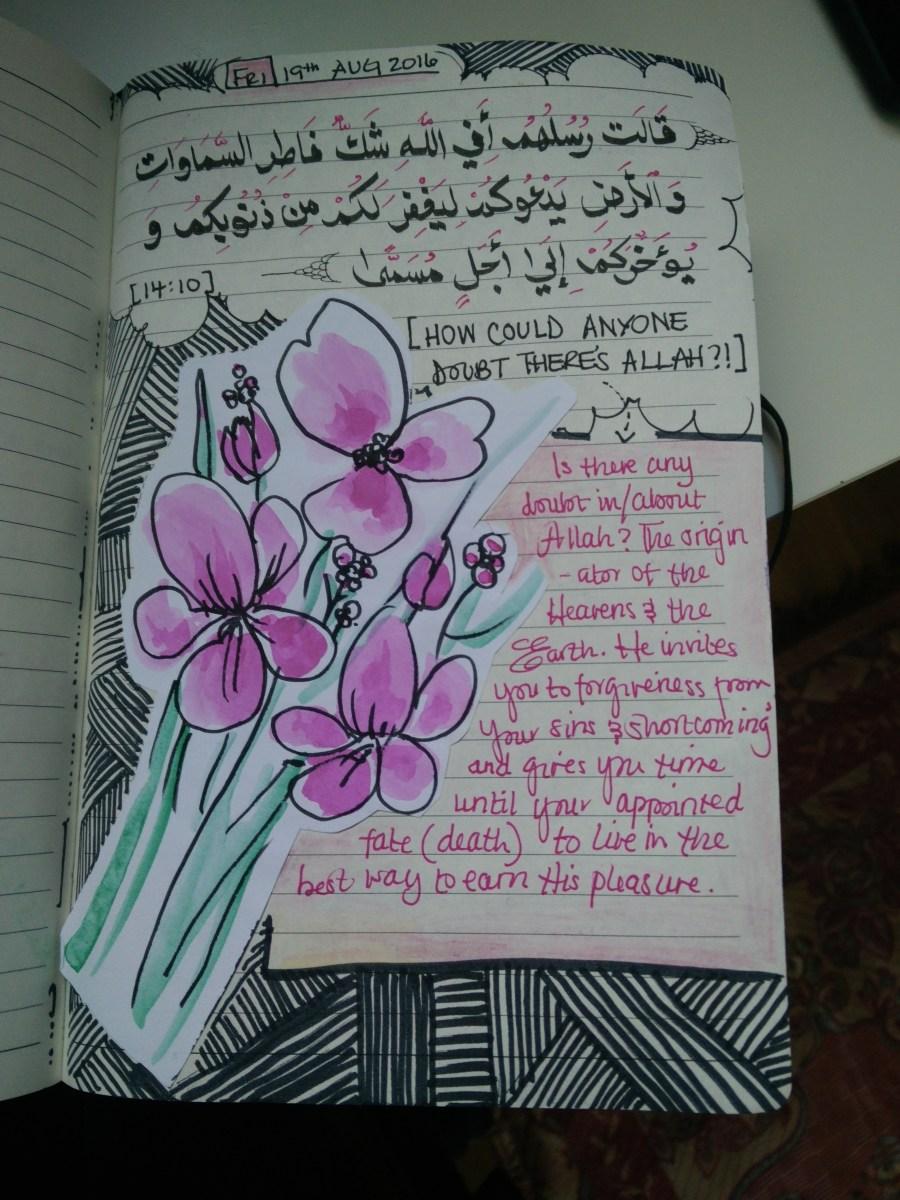 FRI 19th AUG 2016
قَالَت رُسُلُهُمْ أَفِي اللَّهِ شَكٌّ فَاطِرِ السَّمَاوَاتِ
وَالْأَرْضِ يَدْعُوكُمْ لِيَغْفِرَ لَكُمْ مِنْ ذُنُوبِكُمْ وَ
يُؤَخِّرَكُمْ إِلَىٰ أَجَلٍ مُسَمًّى
[14:10]
[HOW COULD ANYONE
DOUBT THERE'S ALLAH?!]
Is there any
doubt in/about
Allah? The origin
-ator of the
Heavens & the
Earth. He invites
you to forgiveness from
your sins & shortcoming
and gives you time
until your appointed
fate (death) to live in the
best way to earn His pleasure.